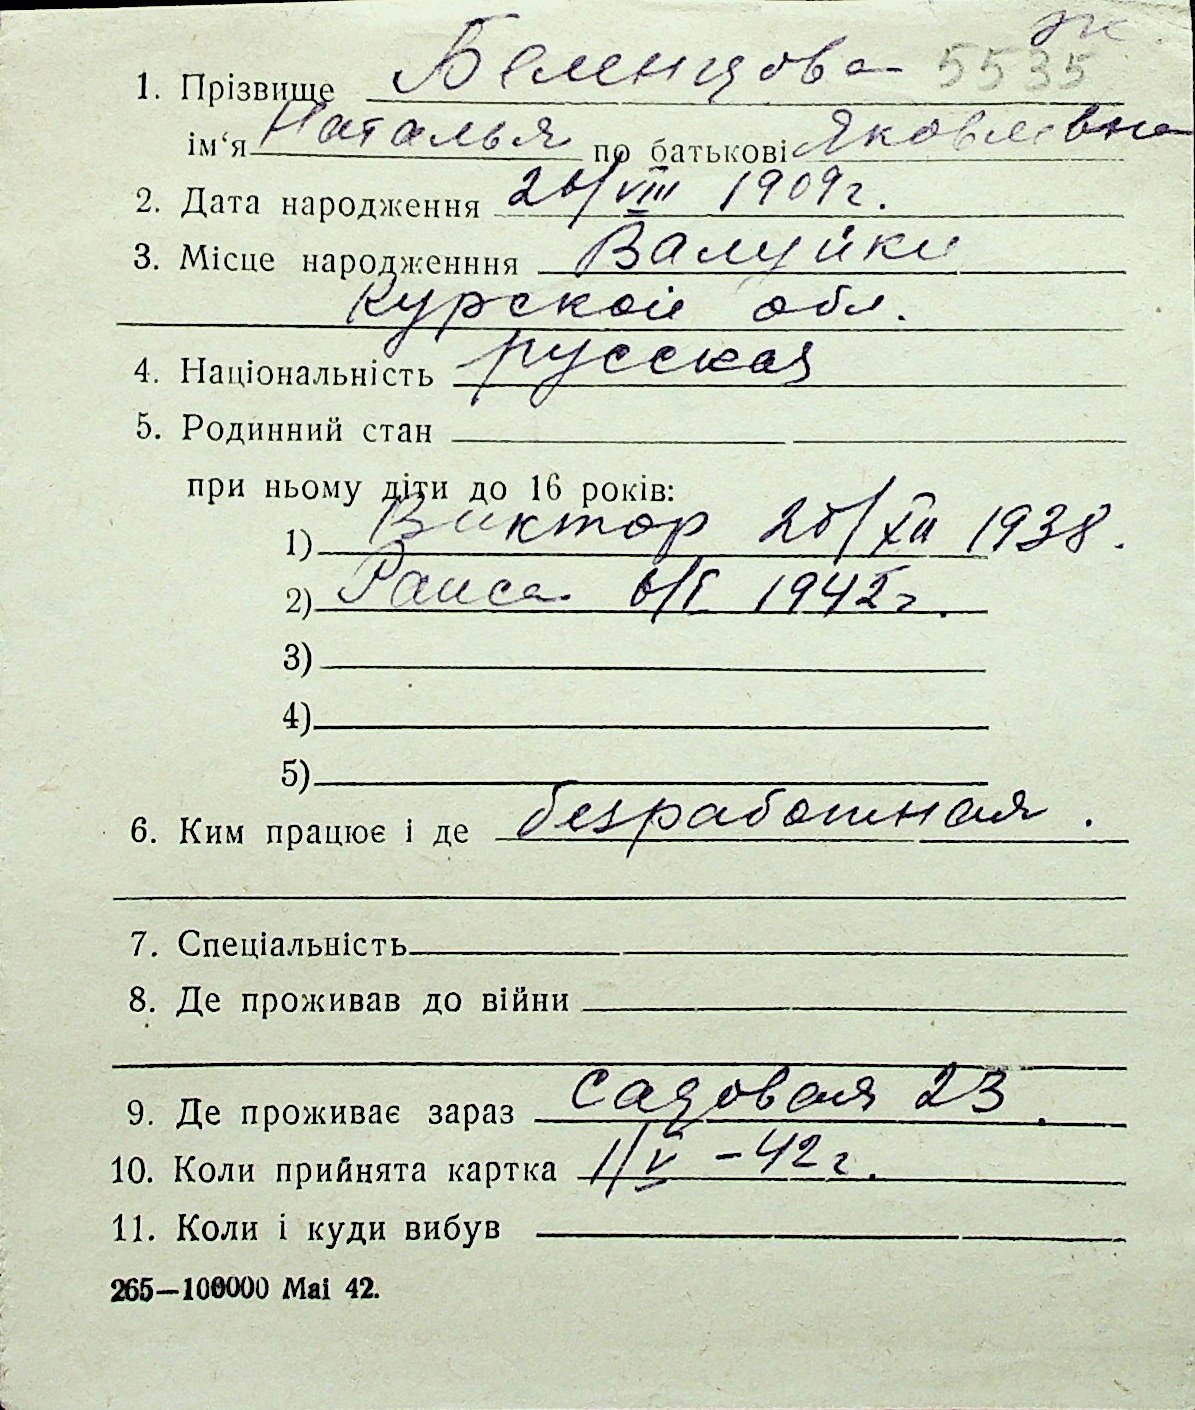 ж.
1. Прізвище Беленцова 5535
ім'я Наталья по батькові Яковлевна
2. Дата народження 26/VIII 1909г.
3. Місце народженння Валуйки
Курской обл.
4. Національність русская
5. Родинний стан
при ньому діти до 16 років:
1) Виктор 25/XII 1938.
2) Раиса 6/I 1942г.
3)
4)
5)
6. Ким працює і де безработная.
7. Спеціальність
8. Де проживав до війни
9. Де проживає зараз Садовая 23.
10. Коли прийнята картка 1/V -42г.
11. Коли і куди вибув
265—100000 Mai 42.